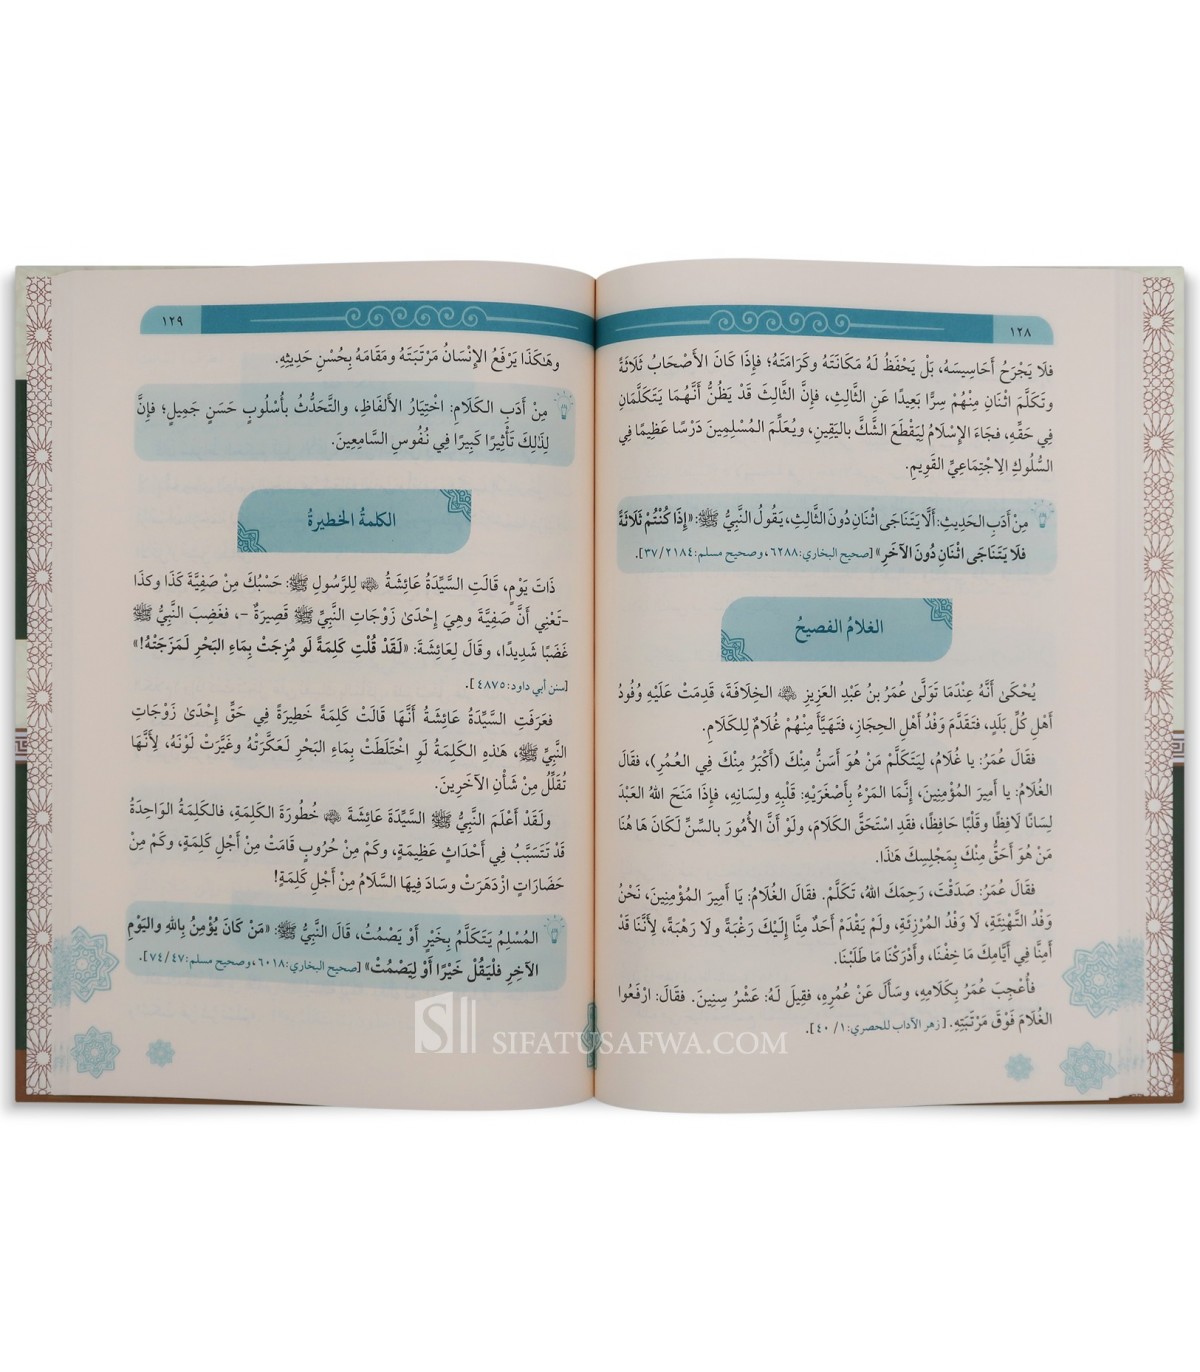 ١٢٨
فلَا يَجْرَحُ أَحَاسِيسَهُ، بَلْ يَحْفَظُ لَهُ مَكَانَتَهُ وكَرَامَتَهُ؛ فإِذَا كَانَ الأَصْحَابُ ثَلَاثَةً
وتَكَلَّمَ اثْنَانِ مِنْهُمْ سِرًّا بَعِيدًا عَنِ الثَّالِثِ، فإِنَّ الثَّالِثَ قَدْ يَظُنُّ أَنَّهُمَا يَتَكَلَّمَانِ
فِي حَقِّهِ، فجَاءَ الإِسْلَامُ لِيَقْطَعَ الشَّكَّ باليَقِينِ، ويُعَلِّمَ المُسْلِمِينَ دَرْسًا عَظِيمًا فِي
السُّلُوكِ الِاجْتِمَاعِيِّ القَوِيمِ.
مِنْ أَدَبِ الحَدِيثِ: أَلَّا يَتَنَاجَى اثْنَانِ دُونَ الثَّالِثِ، يَقُولُ النَّبِيُّ ﷺ: «إِذَا كُنْتُمْ ثَلَاثَةً
فلَا يَتَنَاجَى اثْنَانِ دُونَ الآخَرِ» [صحيح البخاري: ٦٢٨٨، وصحيح مسلم: ٣٧/٢١٨٤].
الغلامُ الفصيحُ
يُحْكَىٰ أَنَّهُ عِنْدَمَا تَوَلَّىٰ عُمَرُ بنُ عَبْدِ العَزِيزِ ﵁ الخِلَافَةَ، قَدِمَتْ عَلَيْهِ وُفُودُ
أَهْلِ كُلِّ بَلَدٍ، فتَقَدَّمَ وَفْدُ أَهْلِ الحِجَازِ، فتَهَيَّأَ مِنْهُمْ غُلَامٌ لِلكَلَامِ.
فقَالَ عُمَرُ: يا غُلَامُ، لِيَتَكَلَّمْ مَنْ هُوَ أَسَنُّ مِنْكَ (أَكْبَرُ مِنْكَ فِي العُمُرِ)، فقَالَ
الغُلَامُ: يا أَمِيرَ المُؤْمِنِينَ، إِنَّمَا المَرْءُ بِأَصْغَرَيْهِ: قَلْبِهِ ولِسَانِهِ، فإِذَا مَنَحَ اللهُ العَبْدَ
لِسَانًا لَافِظًا وقَلْبًا حَافِظًا، فقَدِ اسْتَحَقَّ الكَلَامَ، ولَوْ أَنَّ الأُمُورَ بالسِّنِّ لَكَانَ هَا هُنَا
مَنْ هُوَ أَحَقُّ مِنْكَ بِمَجْلِسِكَ هَٰذَا.
فقَالَ عُمَرُ: صَدَقْتَ، رَحِمَكَ اللهُ، تَكَلَّمْ. فقَالَ الغُلَامُ: يا أَمِيرَ المُؤْمِنِينَ، نَحْنُ
وَفْدُ التَّهْنِئَةِ، لَا وَفْدُ المُرْزِئَةِ، ولَمْ يَقْدَمْ أَحَدٌ مِنَّا إِلَيْكَ رَغْبَةً ولَا رَهْبَةً، لِأَنَّنَا قَدْ
أَمِنَّا فِي أَيَّامِكَ مَا خِفْنَا، وأَدْرَكْنَا مَا طَلَبْنَا.
فأُعْجِبَ عُمَرُ بِكَلَامِهِ، وسَأَلَ عَنْ عُمُرِهِ، فقِيلَ لَهُ: عَشْرُ سِنِينَ. فقَالَ: ارْفَعُوا
الغُلَامَ فَوْقَ مَرْتَبَتِهِ. [زهر الآداب للحصري: ١/ ٤٠].
١٢٩
وهَٰكَذَا يَرْفَعُ الإِنْسَانُ مَرْتَبَتَهُ ومَقَامَهُ بِحُسْنِ حَدِيثِهِ.
مِنْ أَدَبِ الكَلَامِ: اخْتِيَارُ الأَلفَاظِ، والتَّحَدُّثُ بأُسْلُوبٍ حَسَنٍ جَمِيلٍ؛ فإِنَّ
لِذَٰلِكَ تَأْثِيرًا كَبِيرًا فِي نُفُوسِ السَّامِعِينَ.
الكلمةُ الخطيرةُ
ذَاتَ يَوْمٍ، قَالَتِ السَّيِّدَةُ عَائِشَةُ ﵂ لِلرَّسُولِ ﷺ: حَسْبُكَ مِنْ صَفِيَّةَ كَذَا وكذَا
-تَعْنِي أَنَّ صَفِيَّةَ وهِيَ إِحْدَىٰ زَوْجَاتِ النَّبِيِّ ﷺ قَصِيرَةٌ -، فغَضِبَ النَّبِيُّ ﷺ
غَضَبًا شَدِيدًا، وقَالَ لِعَائِشَةَ: «لَقَدْ قُلْتِ كَلِمَةً لَو مُزِجَتْ بِمَاءِ البَحْرِ لَمَزَجَتْهُ!»
[سنن أبي داود: ٤٨٧٥].
فعَرَفَتِ السَّيِّدَةُ عَائِشَةُ أَنَّهَا قَالَتْ كَلِمَةً خَطِيرَةً فِي حَقِّ إِحْدَىٰ زَوْجَاتِ
النَّبِيِّ ﷺ، هَٰذِهِ الكَلِمَةُ لَوِ اخْتَلَطَتْ بِمَاءِ البَحْرِ لَعَكَّرَتْهُ وغَيَّرَتْ لَوْنَهُ، لِأَنَّهَا
تُقَلِّلُ مِنْ شَأْنِ الآخَرِينَ.
ولَقَدْ أَعْلَمَ النَّبِيُّ ﷺ السَّيِّدَةَ عَائِشَةَ ﵂ خُطُورَةَ الكَلِمَةِ، فالكَلِمَةُ الوَاحِدَةُ
قَدْ تَتَسَبَّبُ فِي أَحْدَاثٍ عَظِيمَةٍ، وكَمْ مِنْ حُرُوبٍ قَامَتْ مِنْ أَجْلِ كَلِمَةٍ، وكَمْ مِنْ
حَضَارَاتٍ ازْدَهَرَتْ وسَادَ فِيهَا السَّلَامُ مِنْ أَجْلِ كَلِمَةٍ!
المُسْلِمُ يَتَكَلَّمُ بِخَيْرٍ أَوْ يَصْمُتُ، قَالَ النَّبِيُّ ﷺ: «مَنْ كَانَ يُؤْمِنُ بِاللهِ واليَوْمِ
الآخِرِ فلْيَقُلْ خَيْرًا أَوْ لِيَصْمُتْ» [صحيح البخاري: ٦٠١٨، وصحيح مسلم: ٧٤/٤٧].
SIFATUSAFWA.COM